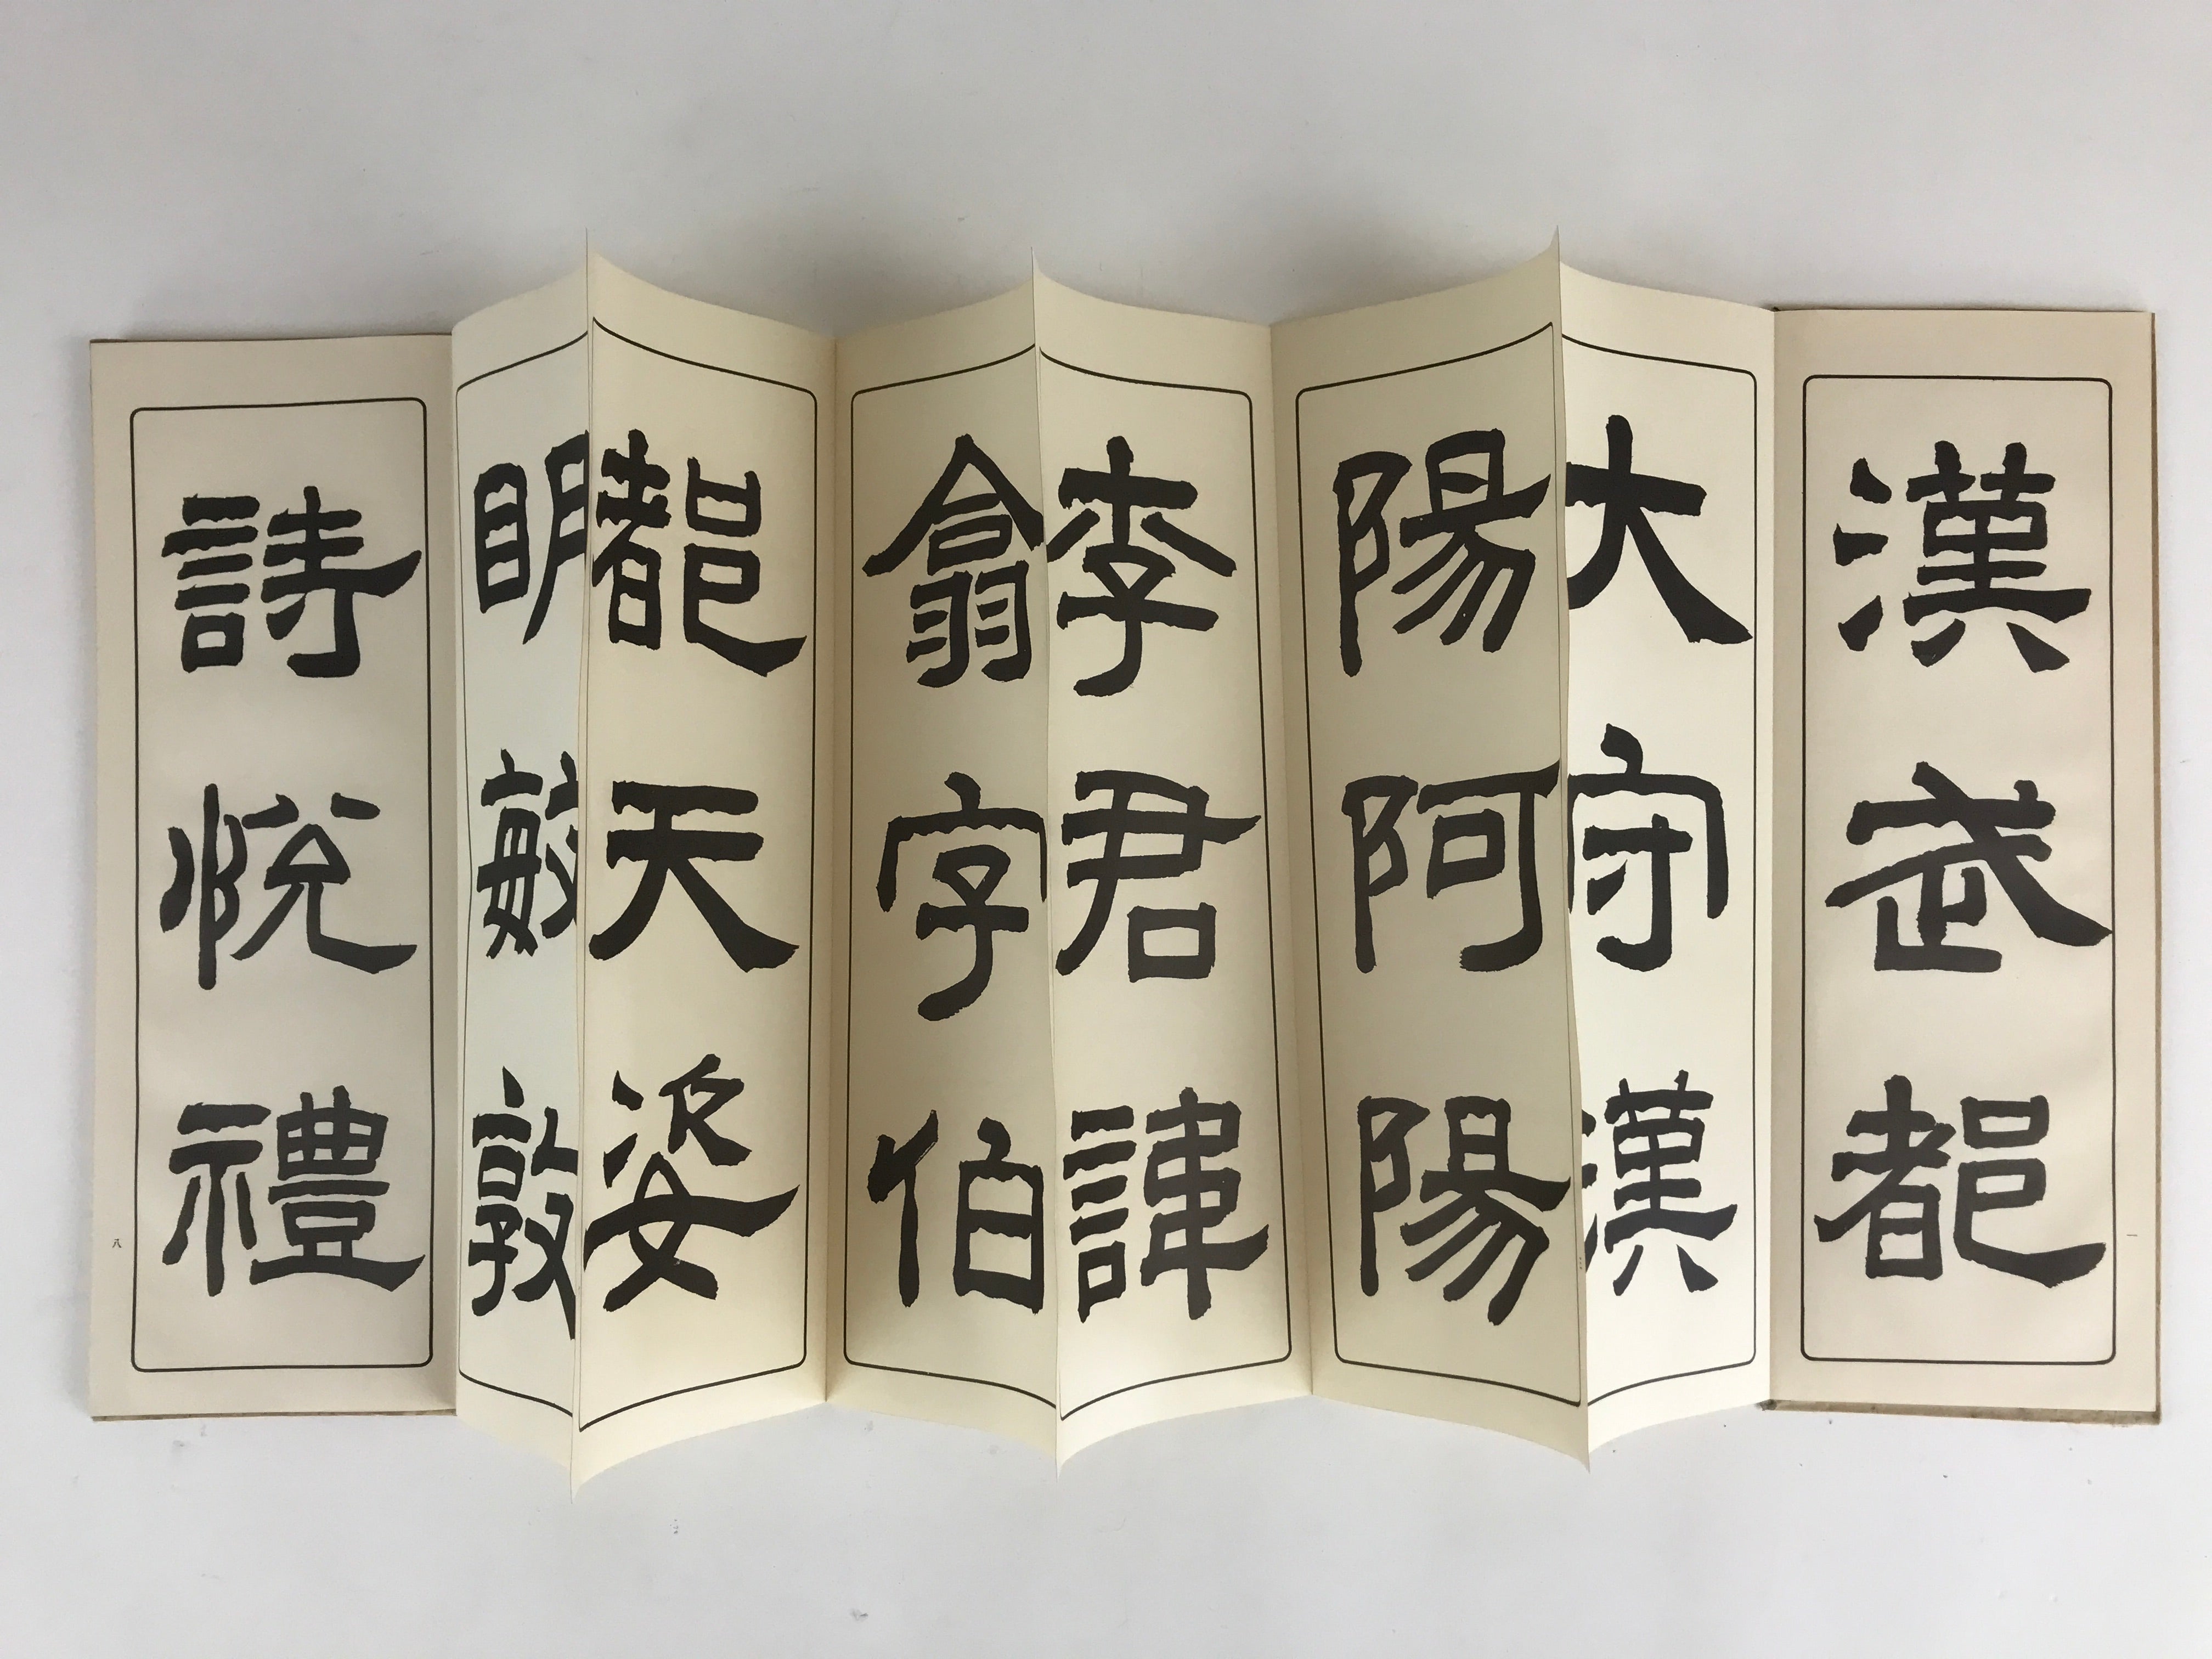 漢武都
大守漢
陽阿陽
李君諱
翕字伯
都天姿
明敏敦
詩悅禮
一
八